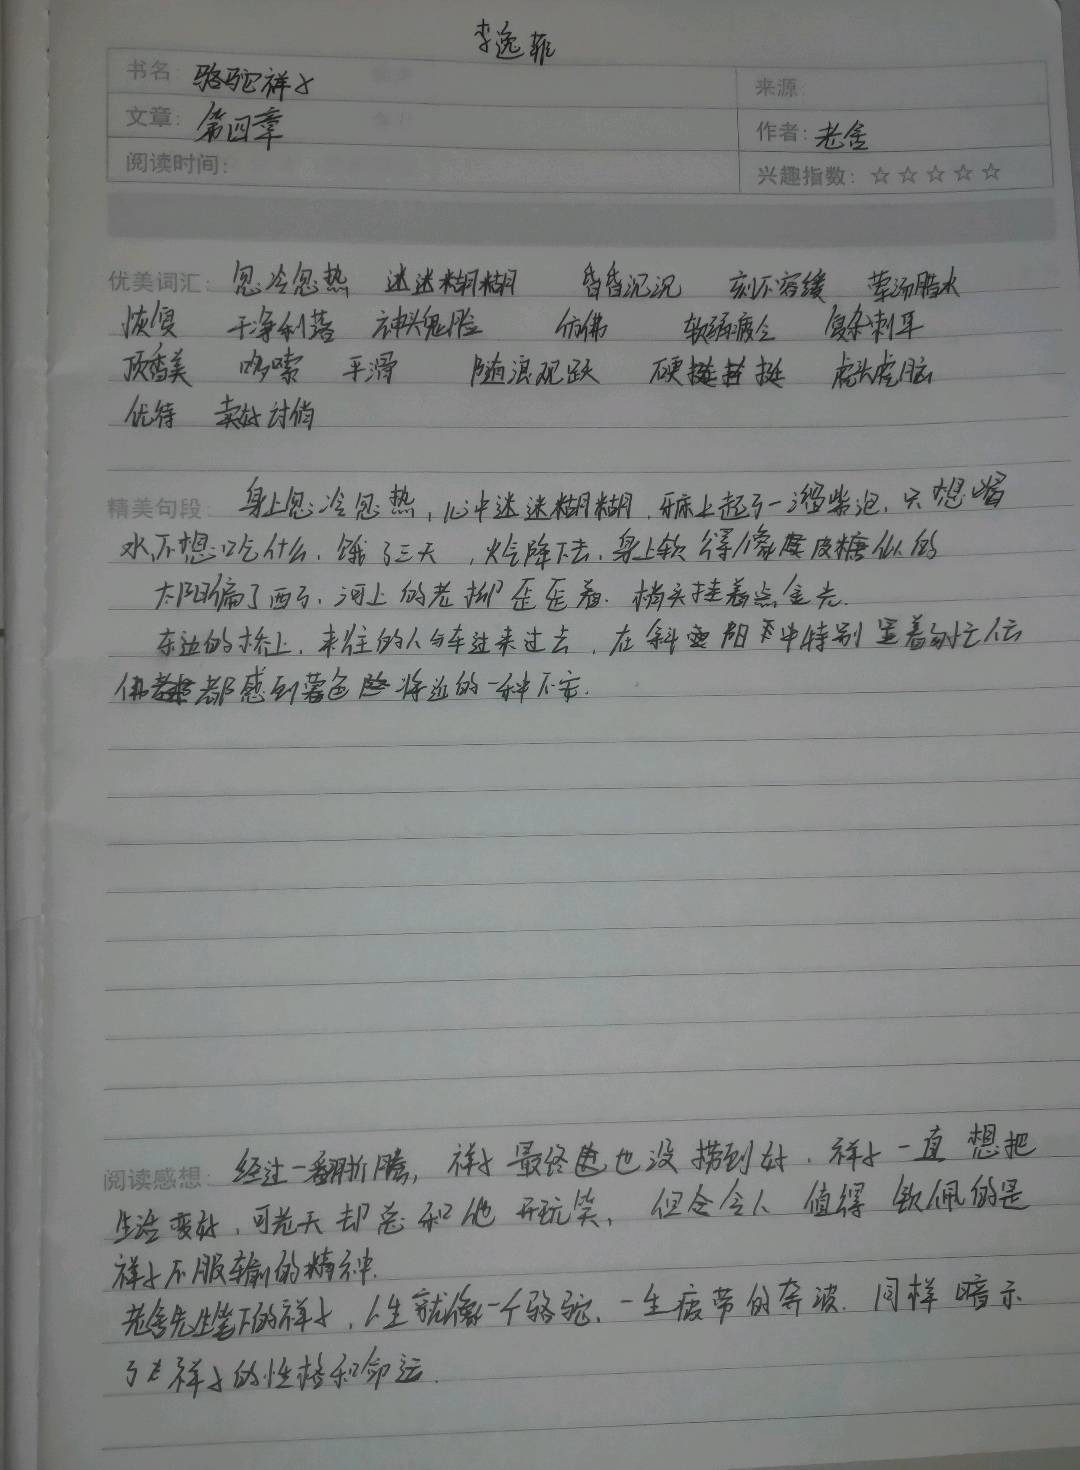 李逸菲
书名: 骆驼祥子
来源:
文章: 第四章
作者: 老舍
阅读时间:
兴趣指数: ☆☆☆☆☆
优美词汇: 忽冷忽热 迷迷糊糊 昏昏沉沉 刻不容缓 荤汤腊水
恢复 干净利落 神头鬼脸 仿佛 复杂刺耳
顶香美 哆嗦 平滑 硬挺挺 虎头虎脑
优待 卖好讨俏
精美句段: 身上忽冷忽热,心中迷迷糊糊,牙床上起了一溜紫泡,只想喝
水,不想吃什么.饿了三天,火气降下去,身上软得像皮糖似的
太阳偏了西了,河上的老柳歪歪着.梢头挂着点金光.
东边的桥上,来往的人与车过来过去,在斜阳中特别显着匆忙仿
佛都感到暮色将近的一种不安.
阅读感想: 经过一翻折腾,祥子最终也没捞到好.祥子一直想把
生活变好,可老天却总和他开玩笑,但令人值得钦佩的是
祥子不服输的精神.
老舍先生笔下的祥子,人生就像一个骆驼,一生疲带的奔波.同样暗示
了祥子的性格和命运.